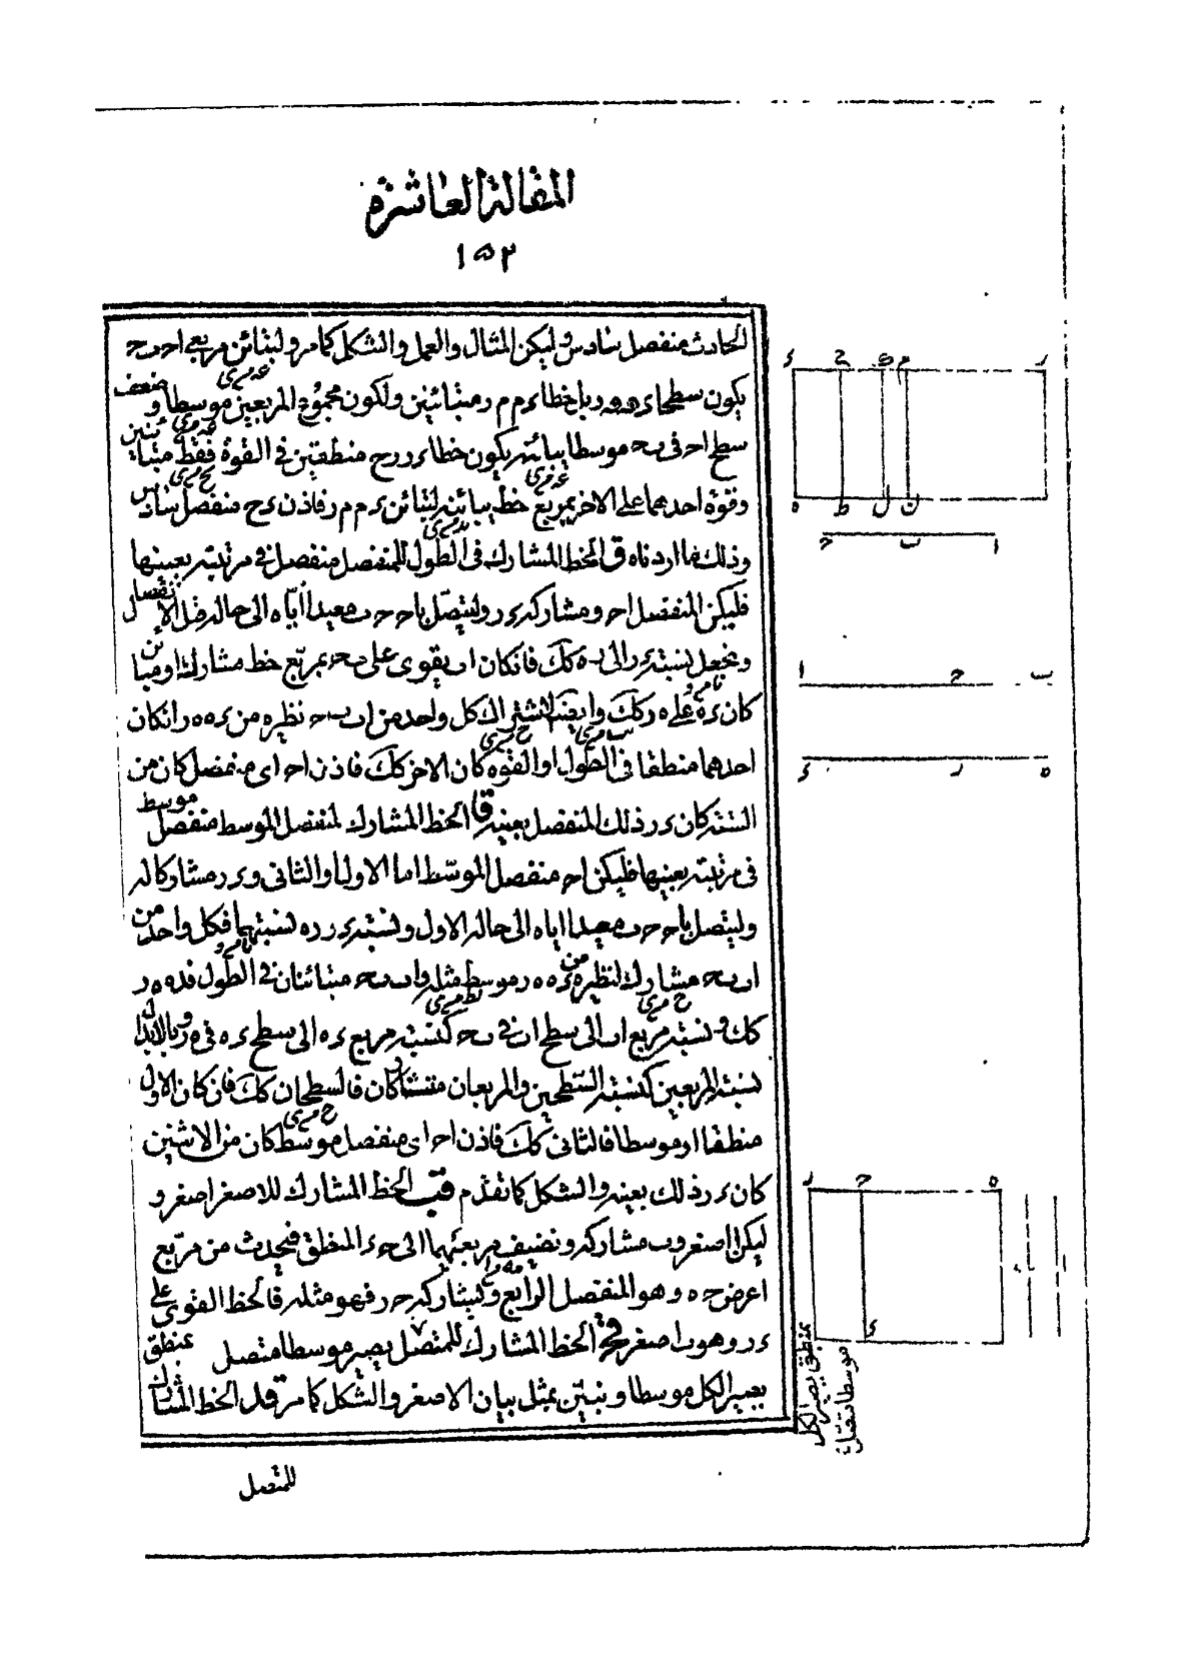 المقالة العاشرة
١٥٢
الحادث منفصل سادس وليكن المثال والعمل والشكل كما مر ولتبائن مربعى اح ب ح
يكون سطحا ء و رباخطاء م م ر متبائنين ولكون مجموع المربعين موسطا وضعف
سطح اح فى ب ح موسطا يبائنه يكون خطاء ر ر ح منطقين فى القوة فقط متبائنين
وقوة احدهما على الاخر بمربع خط يبائنه لتبائن ء م م ر فاذن ء ح منفصل سادس
وذلك ما اردناه ق الخط المشارك فى الطول للمنفصل منفصل فى مرتبته بعينها
فليكن المنفصل اح ومشاركه ء ر وليتصل باح ح ب معيدا اياه الى حاله قبل الانفصال
ونجعل نسبة ء ر الى ر ه كك فان كان اب يقوى على ب ح بمربع خط مشارك او مبائن
كان ء ه على ه ر كك وايضا لاشتراك كل واحد من اب ب ح نظيره من ء ه ه ر ان كان
احدهما منطقا فى الطول او القوة كان الاخر كك فاذن اح اى منفصل كان من
الستة كان ء ر ذلك المنفصل بعينه قا الخط المشارك لمنفصل الموسط منفصل موسط
فى مرتبته بعينها فليكن اح منفصل الموسط اما الاول او الثانى و ء ر مشاركا له
وليتصل باح ح ب معيدا اياه الى حاله الاول ونسبة ء ر ر ه كنسبتهما فكل واحد من
اب ب ح مشارك لنظيره من ء ه ه ر موسط مثله واب ب ح متبائنان فى الطول فء ه ه ر
كك ونسبة مربع اب الى سطح اب فى ب ح كنسبة مربع ء ه الى سطح ء ه فى ه ر وبالابدال
نسبة المربعين كنسبة السطحين والمربعان متشاركان فالسطحان كك فان كان الاول
منطقا او موسطا فالثانى كك فاذن اح اى منفصل موسط كان من الاثنين
كان ء ر ذلك بعينه والشكل كما تقدم قب الخط المشارك للاصغر اصغر و
ليكن ا اصغر وب مشاركه ونضيف مربعيهما الى ح ء المنطق فيحدث من مربع
ا عرض ح ه وهو المنفصل الرابع ويشاركه ح ر فهو مثله فالخط القوى على
ء ر وهو ب اصغر قج الخط المشارك للمتصل بمنطق يصير موسطا متصل
يصير الكل موسطا ونبين بمثل بيان الاصغر والشكل كما مر قد الخط المشارك
للمتصل
بمنطق يصير الكل
ء ح م ر
ه ط ل ن
ا ب ح
ا ح ب
ء ر ه
ر ح ه
ء